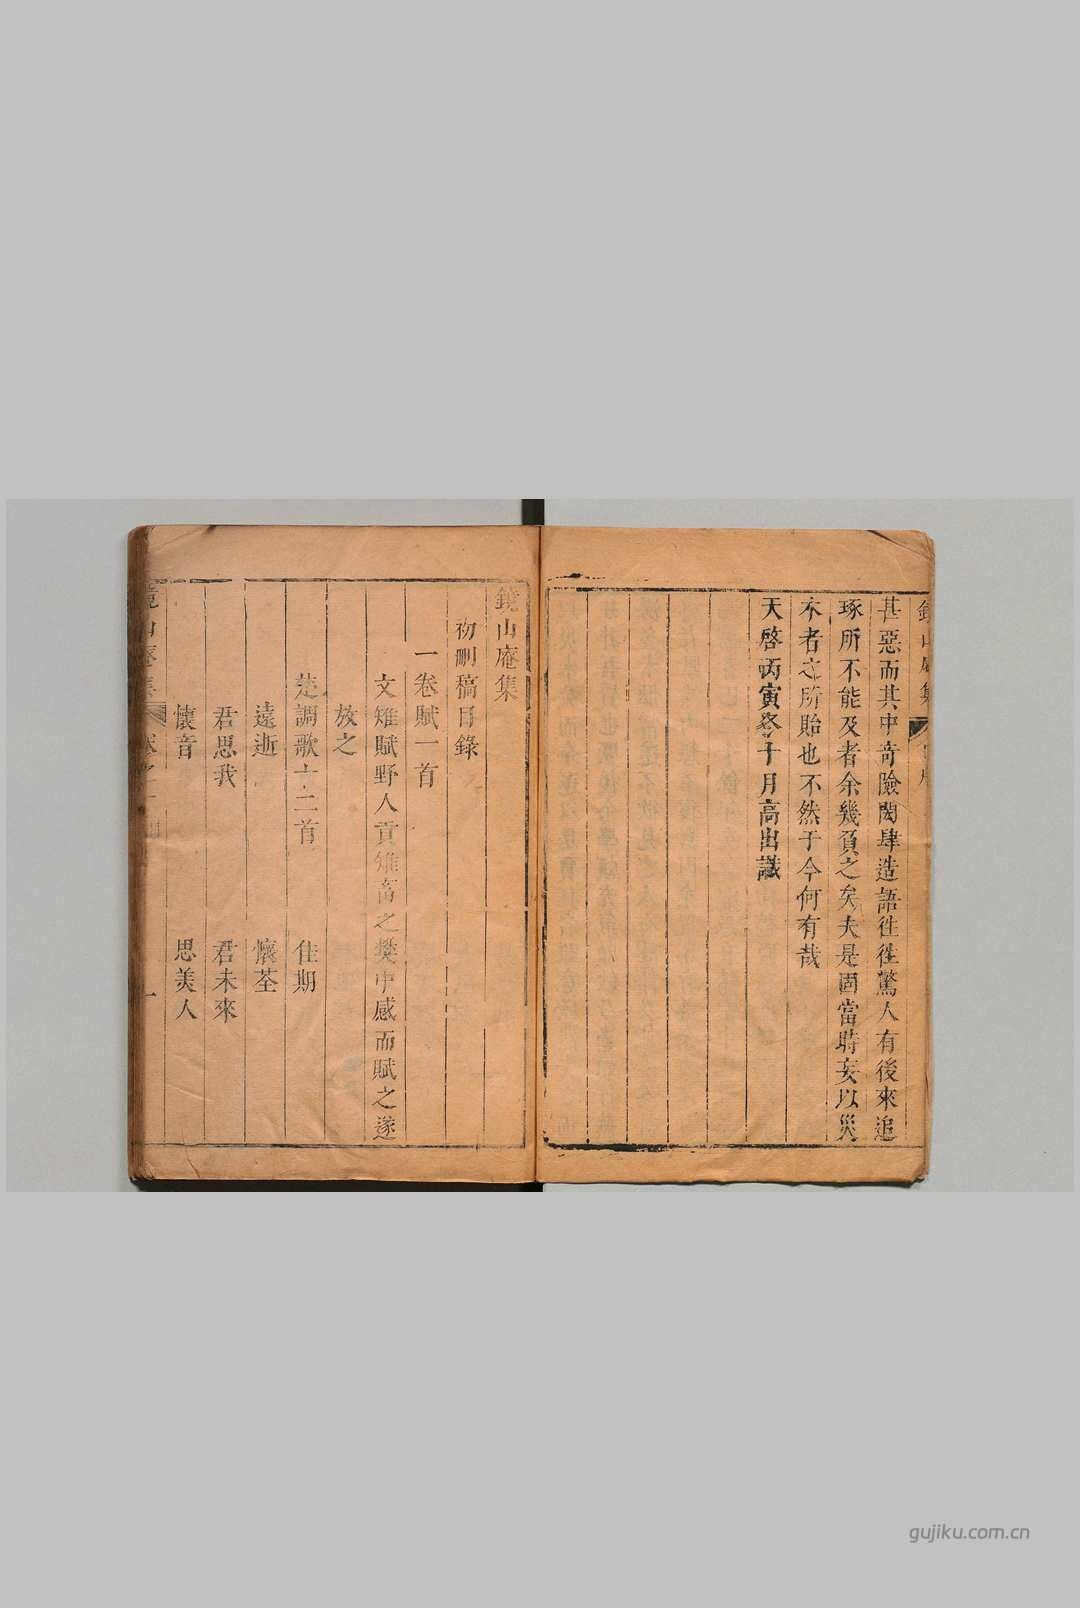 甚惡而其中奇險閎肆造語徃徃驚人有後來追
琢所不能及者余幾負之矣夫是固當時妄以災
木者之所貽也不然于今何有哉
天啓丙寅冬十月高出識
鏡山庵集
初刪稿目錄
一卷賦一首
文雉賦野人貢雉畜之樊中感而賦之遂
放之
楚調歌十二首
佳期
遠逝
懷荃
君思我
君未來
懷音
思美人
一
gujiku.com.cn